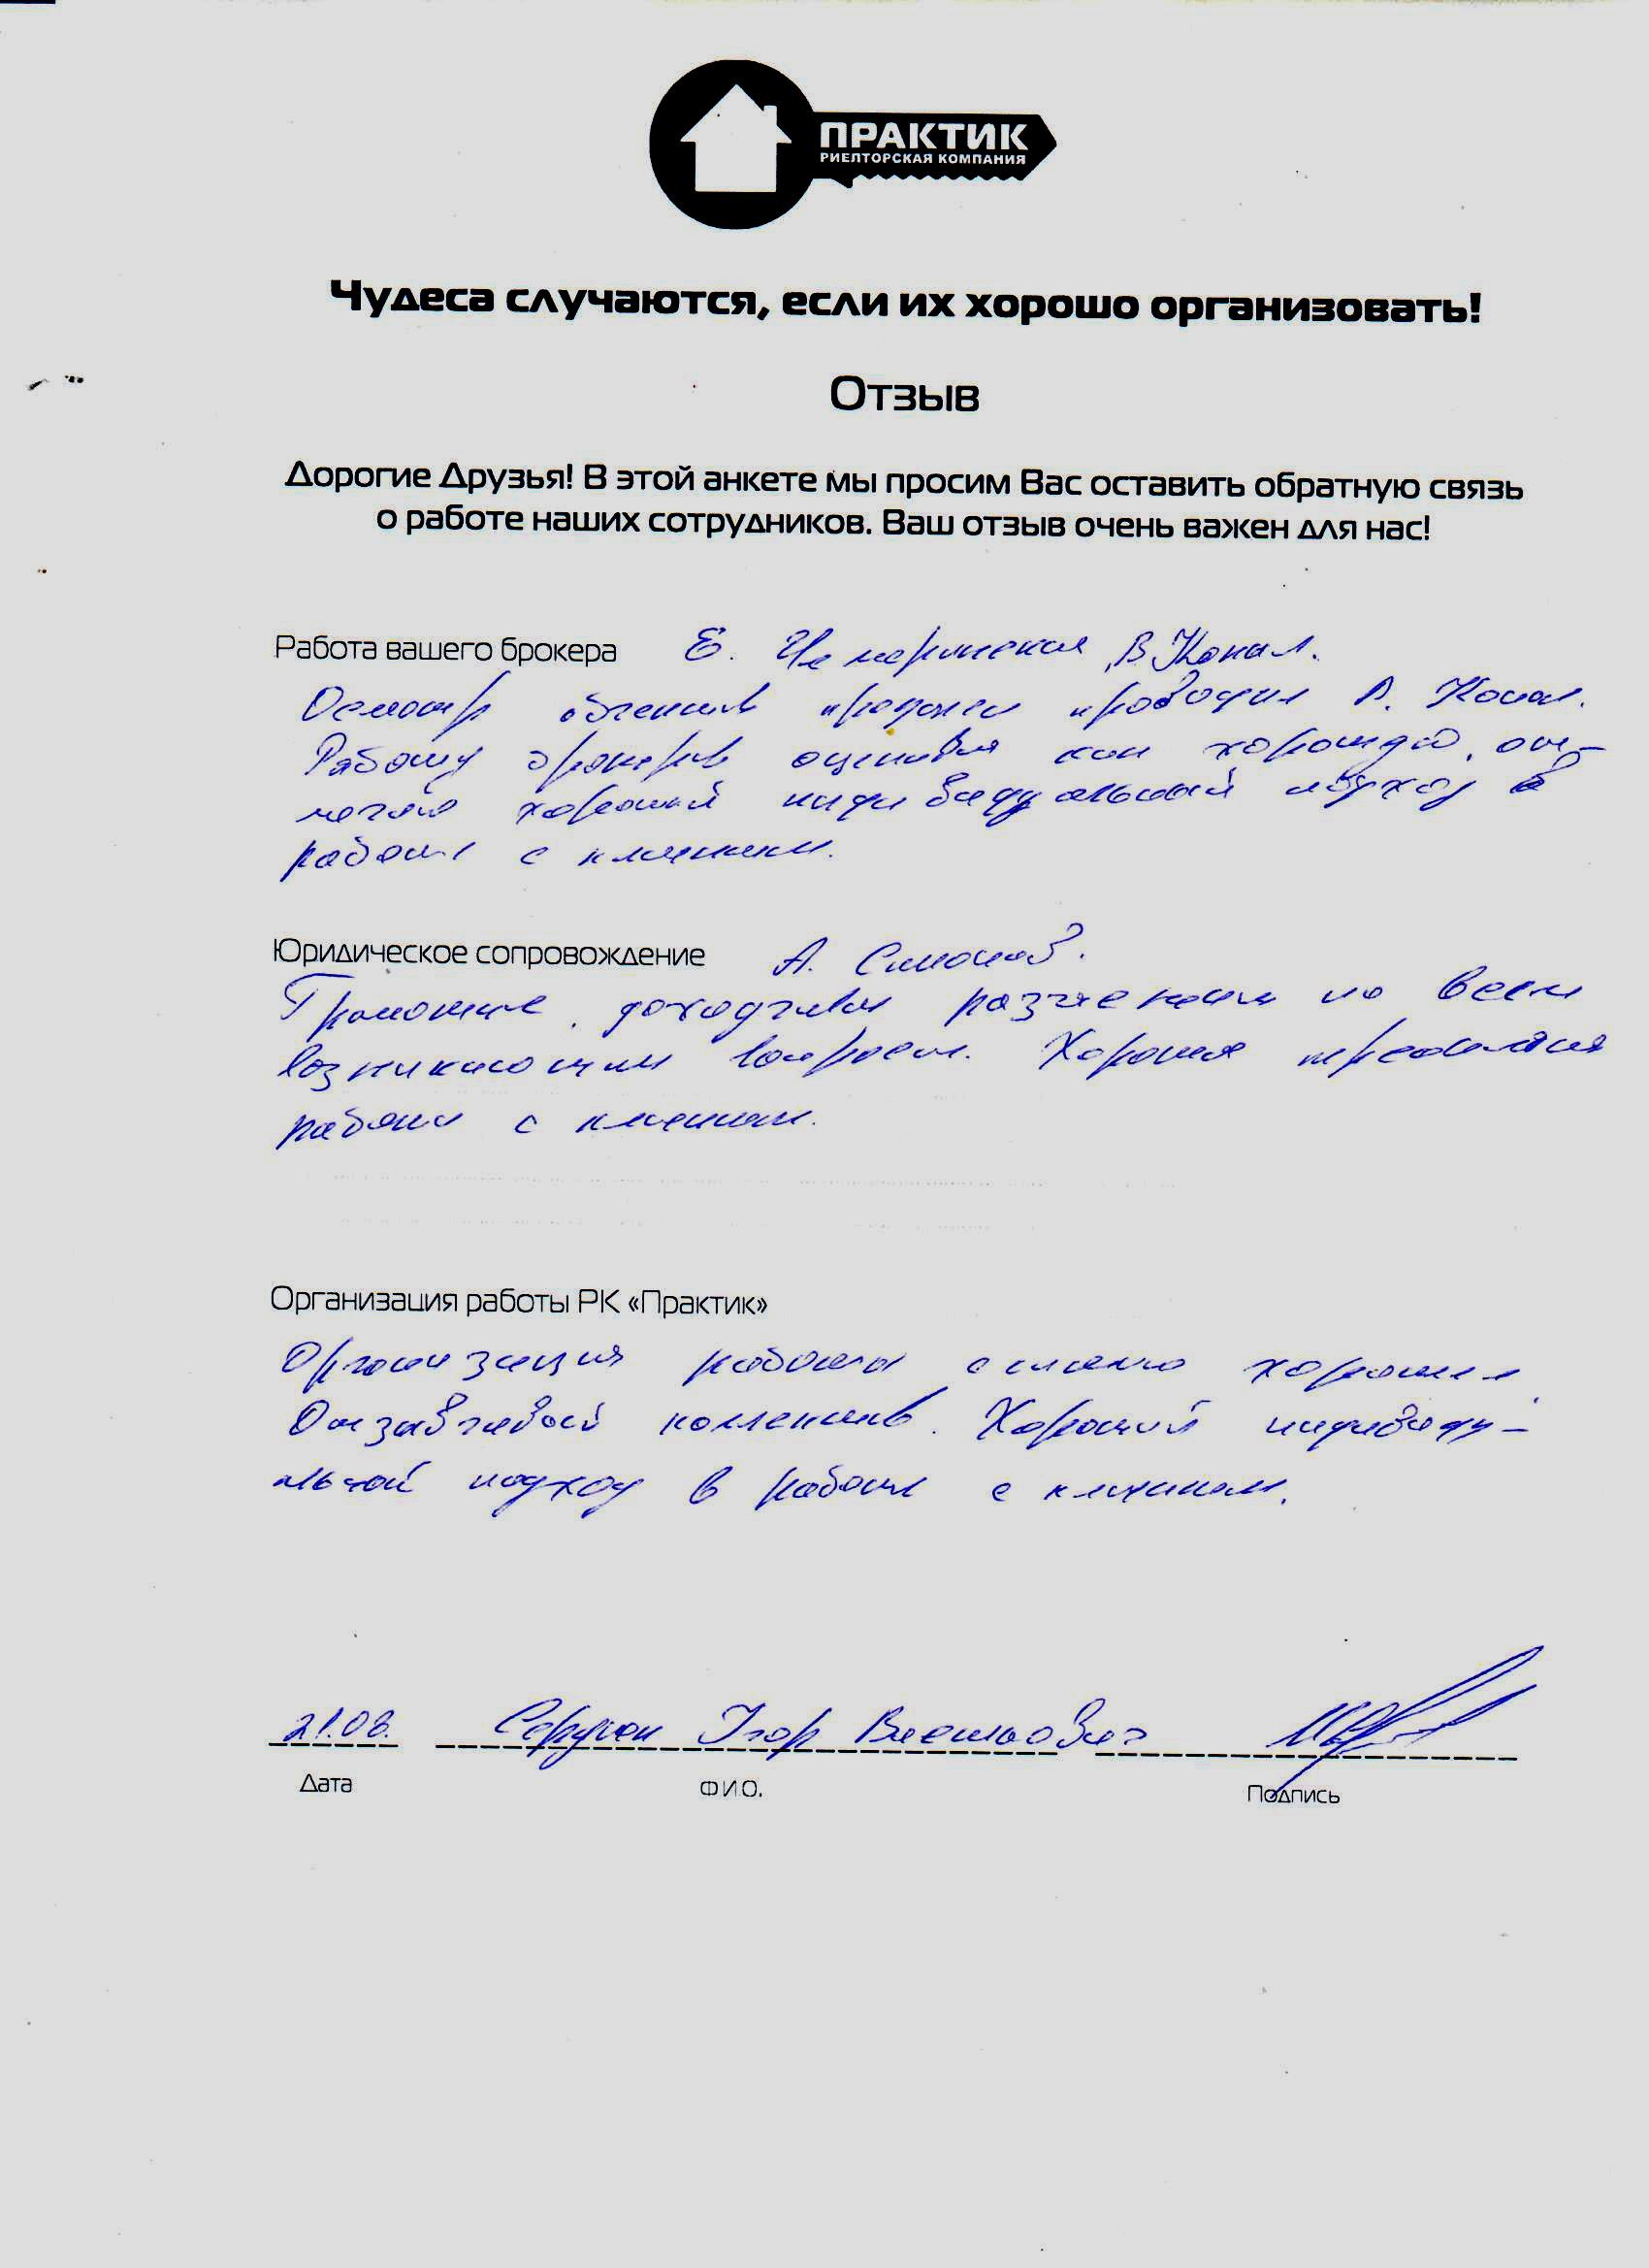 ПРАКТИК
РИЕЛТОРСКАЯ КОМПАНИЯ
Чудеса случаются, если их хорошо организовать!
Отзыв
Дорогие Друзья! В этой анкете мы просим Вас оставить обратную связь
о работе наших сотрудников. Ваш отзыв очень важен для нас!
Работа вашего брокера Е. В.
Осмотр объектов продажи проводил
Работу брокеров оцениваю как хорошую, от-
мечаю хороший индивидуальный подход в
работе с клиентами.
Юридическое сопровождение А. Симонов.
Грамотные, доходчивые разъяснения по всем
возникающим вопросам. Хорошая
работа с клиентом.
Организация работы РК «Практик»
Организация работы хорошая.
Отзывчивый коллектив. Хороший индивиду-
альный подход в работе с клиентом.
21.08. Игорь Васильевич
Дата Ф.И.О. Подпись